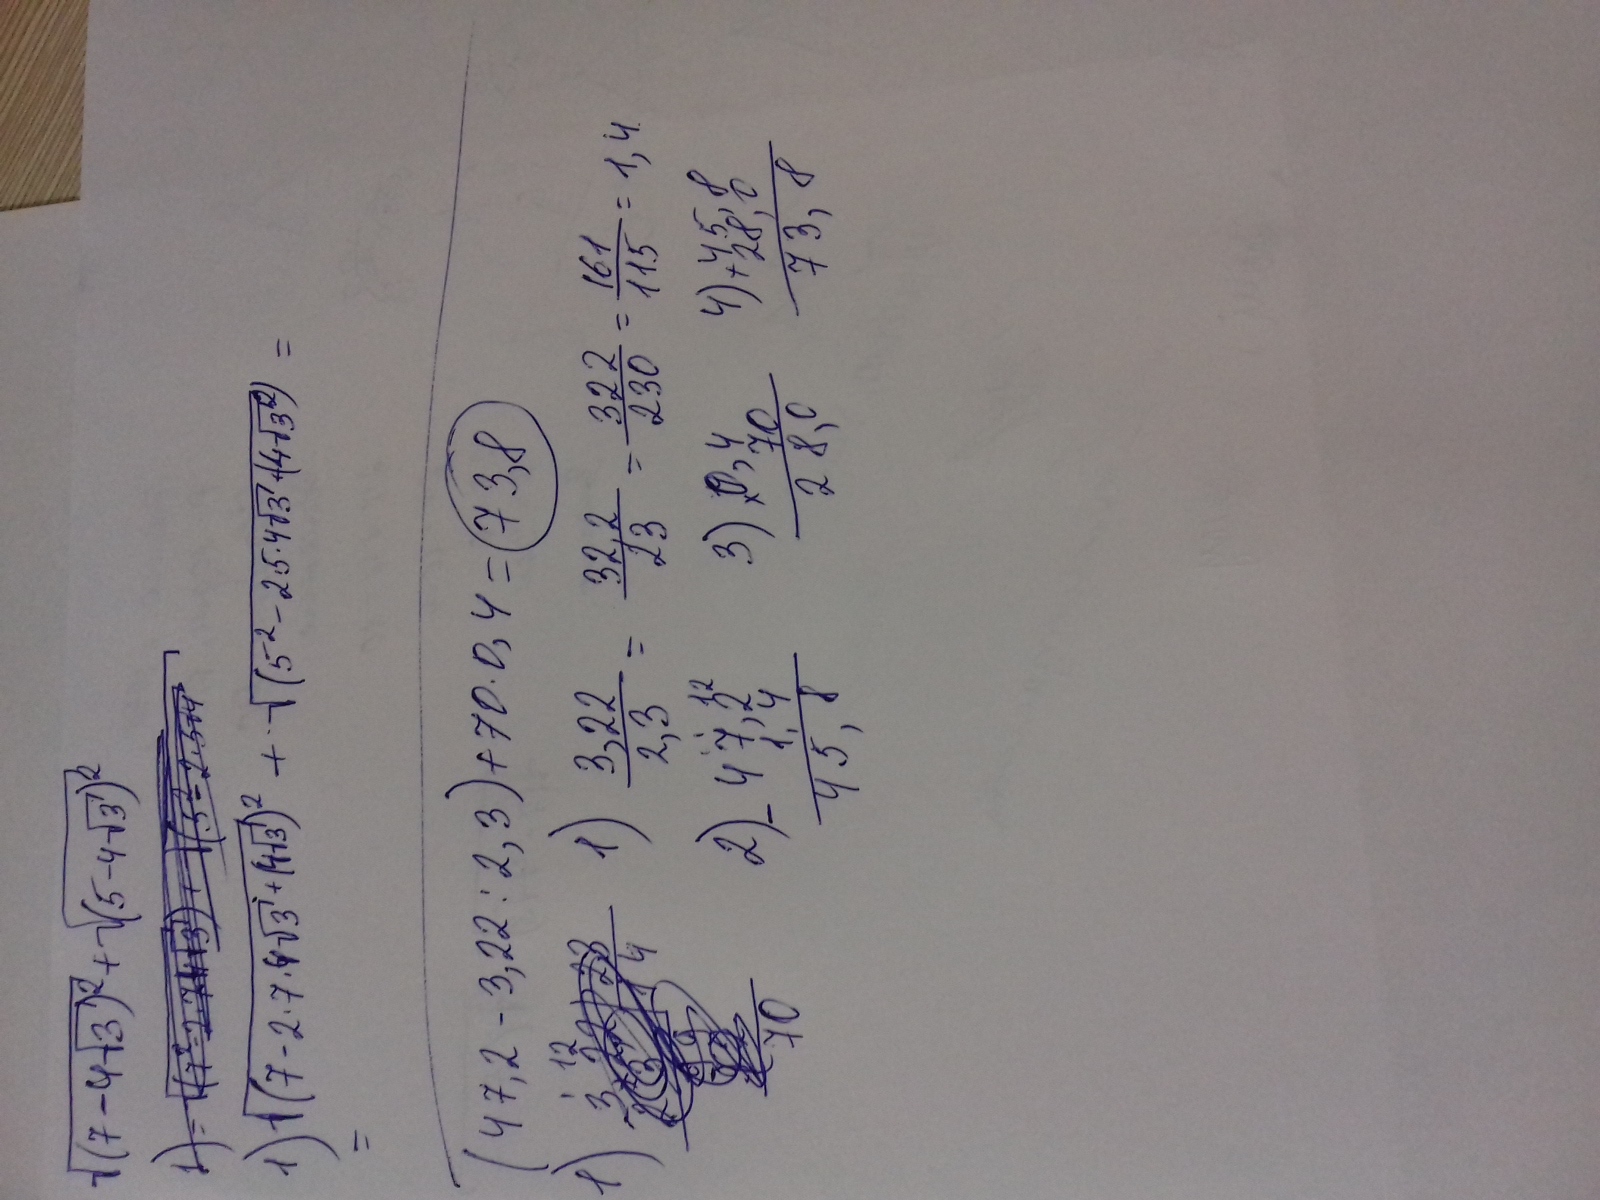 √(7-4√3)² + √(5-4√3)²
1) √(7-2·7·4√3+(4√3)² + √(5²-2·5·4√3+(4√3²) =
=
(47,2-3,22:2,3)+70·0,4=73,8
1) 3,22/2,3 = 32,2/23 = 322/230 = 161/115 = 1,4
2) - 47,2 3) × 0,4 4) + 45,8
1,4 70 28,0
45,8 28,0 73,8